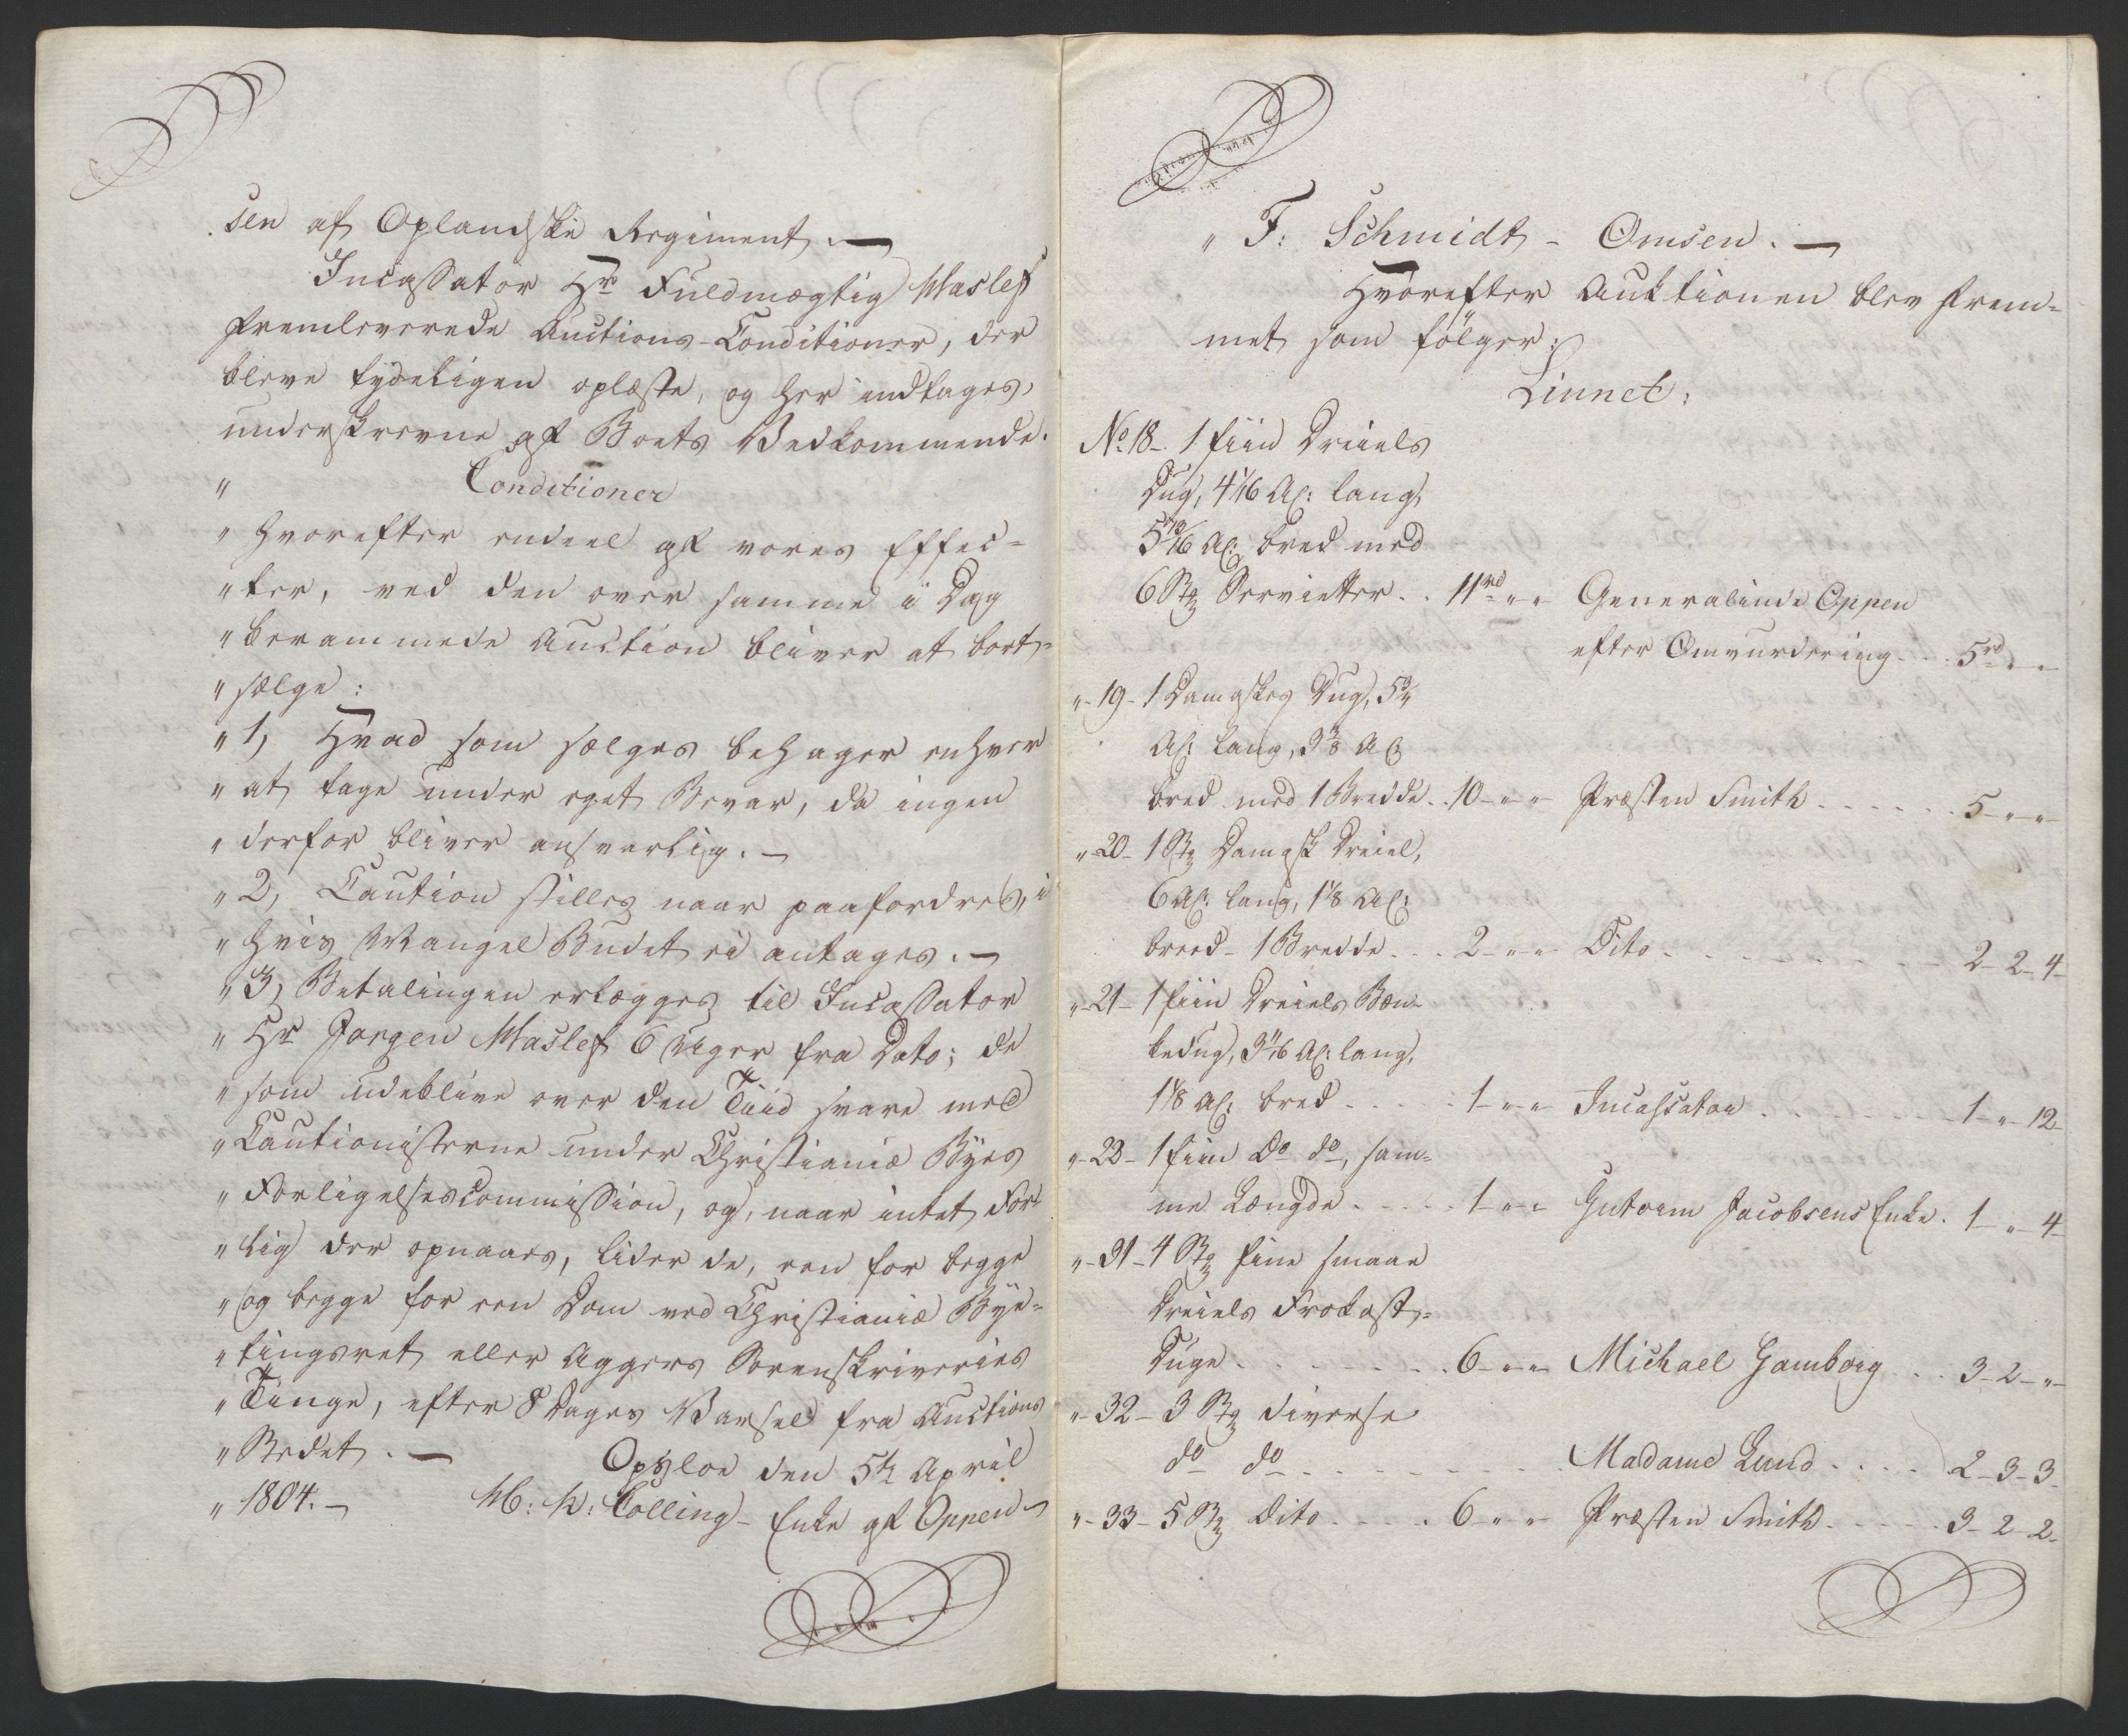 sen af Oplandske Regiment. —
Incassator Hr Fuldmægtig Maslef
fremleverede Auctions-Conditioner, der
bleve tydeligen oplæste, og her indtages,
underskrevne af Boets Vedkommende.
" Conditioner
" hvorefter endeel af vores Effec-
" ter, ved den over samme i Dag
" berammede Auction bliver at bort-
" sælge:
" 1, Hvad som sælges behager enhver
" at tage under eget Bevar, da ingen
" derfor bliver ansvarlig. —
" 2, Caution stilles naar paafordres, i
" hvis Mangel Budet ei antages. —
" 3, Betalingen erlægges til Incassator
" Hr Jørgen Maslef 6 Uger fra Dato; de
" som udeblive over den Tiid svare med
" Cautionisterne under Christianiæ Byes
" Forligelsescommission, og, naar intet For-
" lig der opnaaes, lider de, een for begge
" og begge for een Dom ved Christianiæ Bye-
" tingsret eller Aggers Sorenskriveries
" Tinge, efter 8 Dages Varsel fra Auctions
" Stedet. — Opsloe den 5t April
" 1804. — M: K: Colling – Enke af Oppen –
" F: Schmidt – Omsen. —
Hvorefter Auktionen blev frem-
met som følger:
Linnet:
No 18 – 1 fiin Dreiels
Dug, 4 1/16 Al: lang,
5 13/16 Al: bred med
6 St Servietter . . 11 rd " " Generalinde Oppen
efter Omvurdering . . . 5 rd " "
" – 19 – 1 Damaskes Dug, 5 3/4
Al: lang, 3 3/8 Al:
bred med 1 Bredde . . 10 – " – " Præsten Smith . . . . . . 5 – " – "
" – 20 – 1 St Damask Dreiel,
6 Al: lang, 1 1/8 Al:
breed – 1 Bredde . . . 2 – " – " Dito . . . . . . 2 – 2 – 4
" – 21 – 1 fiin Dreiels Bæn-
kedug, 3 1/16 Al: lang,
1 1/8 Al: bred . . . . . 1 – " – " Incassator . . . . . . 1 – " – 12
" – 23 – 1 fiin Do do, sam-
me Længde . . . . . 1 – " – " Guttorm Jacobsens Enke . 1 – " – 4
" – 31 – 4 St fine smaae
Dreiels Frokost-
Duge . . . . . . . 6 – " – " Michael Gamborg . . . 3 – 2 – "
" – 32 – 3 St diverse
do do . . . . . . . Madame Lund . . . . 2 – 3 – 3
" – 33 – 5 St Dito . . . . 6 – " – " Præsten Smith . . . . . 3 – 2 – 2